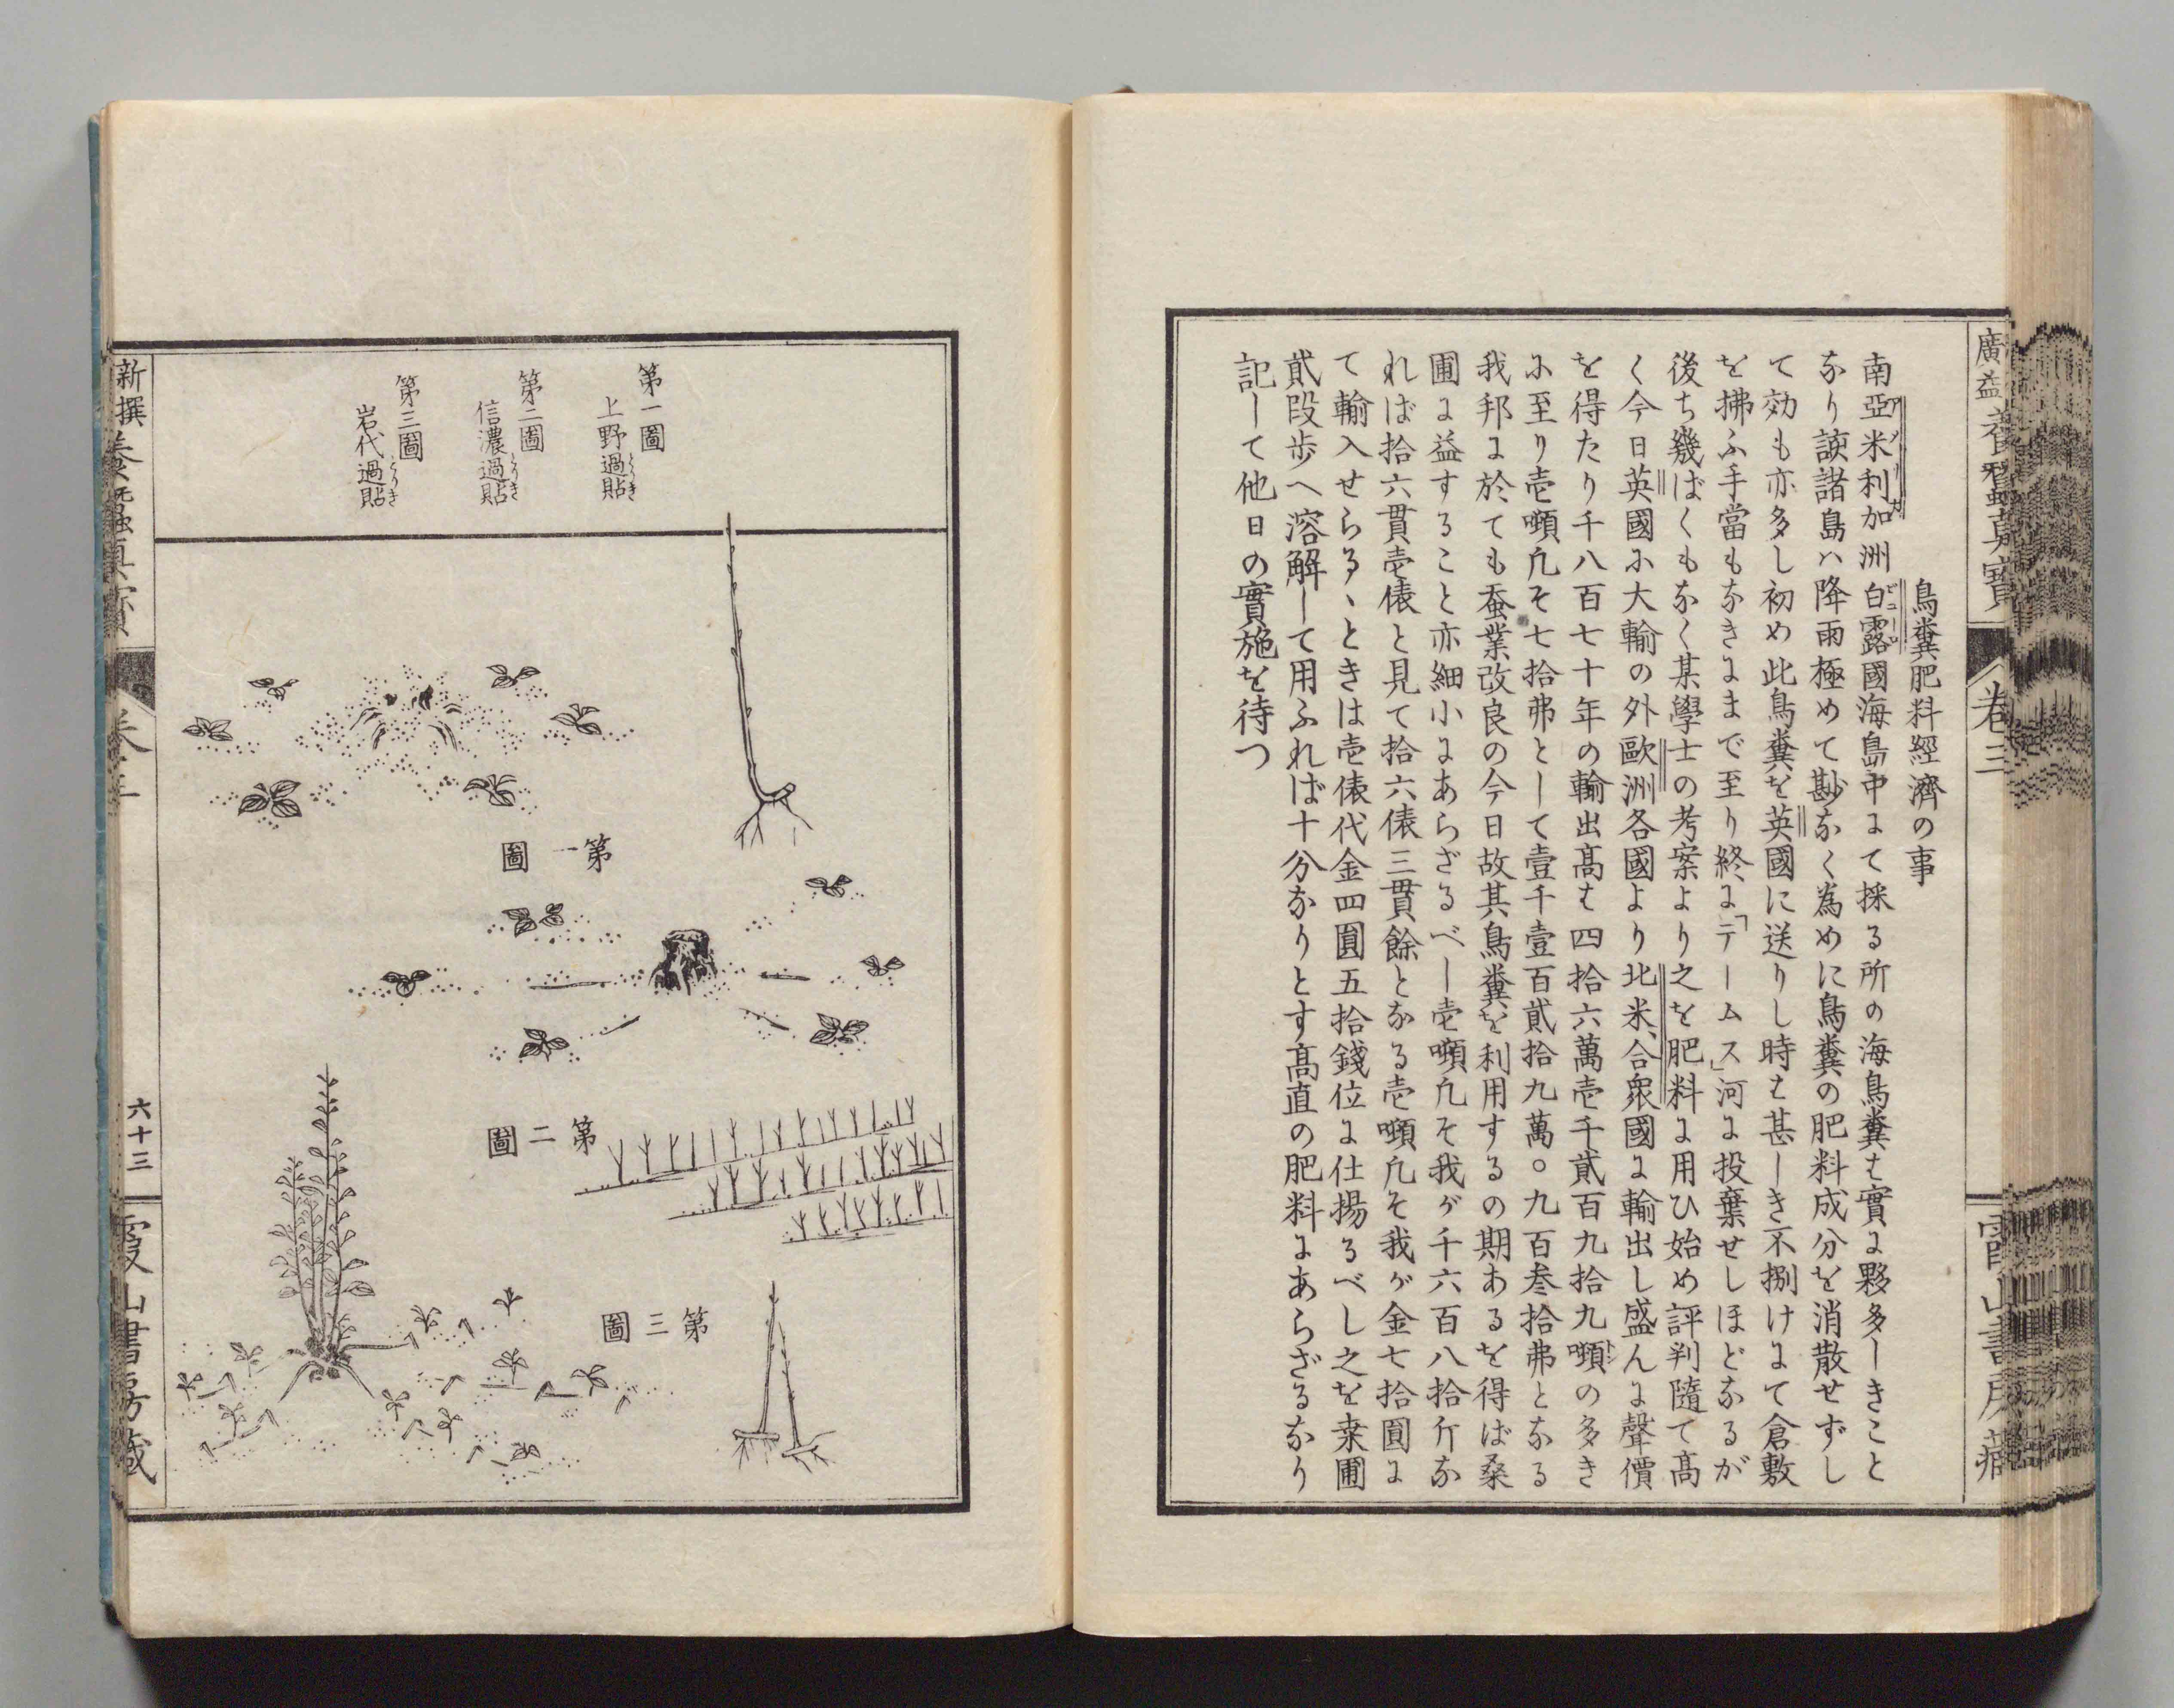 廣益養蠶眞寳
卷三
鳥糞肥料經濟の事
南亞米利加洲白露國海島中にて採る所の海鳥糞は實に夥多しきこと
なり該諸島ハ降雨極めて尠なく為めに鳥糞の肥料成分を消散せずし
て効も亦多し初め此鳥糞を英國に送りし時は甚しき不捌けにて倉敷
を拂ふ手當もなきにまで至り終に「テームス」河に投棄せしほどなるが
後ち幾ばくもなく某學士の考案より之を肥料に用ひ始め評判隨て髙
く今日英國に大輸の外歐洲各國より北米合衆國に輸出し盛んに聲價
を得たり千八百七十年の輸出髙は四拾六萬壱千貳百九拾九噸の多き
に至り壱噸凡そ七拾弗として壹千壹百貳拾九萬〇九百叁拾弗となる
我邦に於ても蚕業改良の今日故其鳥糞を利用するの期あるを得ば桑
圃に益すること亦細小にあらざるべし壱噸凡そ我が千六百八拾斤な
れば拾六貫壱俵と見て拾六俵三貫餘となる壱噸凡そ我が金七拾圓に
て輸入せらるゝときは壱俵代金四圓五拾錢位に仕揚るべし之を桒圃
貳段歩へ溶解して用ふれば十分なりとす髙直の肥料にあらざるなり
記して他日の實施を待つ
第一圖
上野過貼
とりき
第二圖
信濃過貼
とりき
第三圖
岩代過貼
とりき
第一圖
第二圖
第三圖
新撰養蠶眞寳
卷三
六十三
霞山書房藏